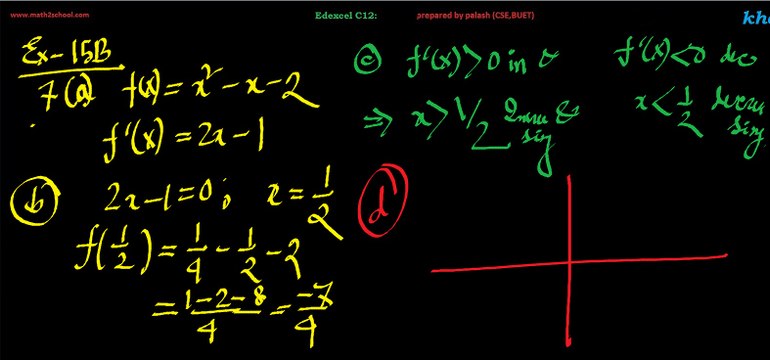 www.math2school.com
Edexcel C12:
prepared by palash (CSE,BUET)
Ex-15B
7(a) f(x) = x² - x - 2
f'(x) = 2x - 1
(b) 2x-1=0; x = 1/2
f(1/2) = 1/4 - 1/2 - 2
= (1-2-8)/4 = -7/4
(c) f'(x) > 0 in
⇒ x > 1/2
sing
f'(x) < 0 dec
x < 1/2
sing
(d)